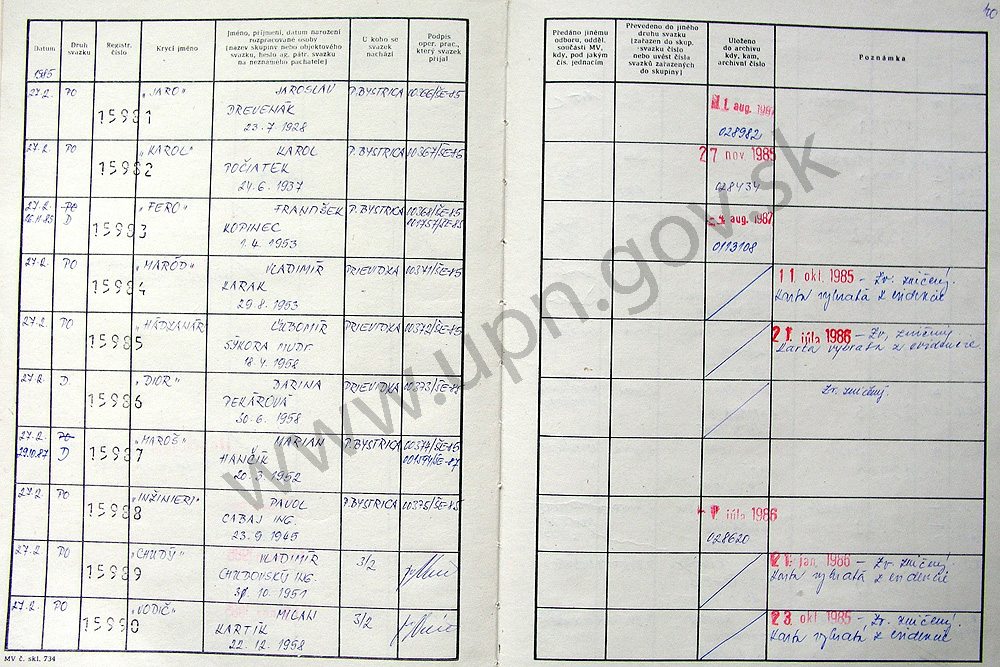 40
Datum
Druh svazku
Registr. číslo
Krycí jméno
Jméno, příjmení, datum narození rozpracované osoby (název skupiny nebo objektového svazku, heslo ag. pátr. svazku na neznámého pachatele)
U koho se svazek nachází
Podpis oper. prac., který svazek přijal
Předáno jinému odboru, odděl. součásti MV, kdy, pod jakým čís. jednacím
Převedeno do jiného druhu svazku (zařazen do skup. svazku číslo nebo uvést čísla svazků zařazených do skupiny)
Uloženo do archivu kdy, kam, archivní číslo
Poznámka
1985
27.2. PO 15981 "JARO" JAROSLAV P. BYSTRICA 00366/ŠE-85
DREVENÁK
23.7.1928
1. aug. 1987
028982
27.2. PO 15982 "KAROL" KAROL P. BYSTRICA 00367/ŠE-85
POČIATEK
24.6.1937
27 nov. 1985
028434
27.2. PO 15983 "FERO" FRANTIŠEK P. BYSTRICA 00368/ŠE-85
D KOPINEC 001757/ŠE-85
1.4.1953
4. aug. 1987
0113108
27.2. PO 15984 "MARÓD" VLADIMÍR PRIEVIDZA 00371/ŠE-85
KARAK
29.8.1953
11 okt. 1985 - Zv. zničený.
Karta vybratá z evidencie
27.2. PO 15985 "HÁDZANÁR" ĽUBOMÍR PRIEVIDZA 00372/ŠE-85
SÝKORA MUDr
18.4.1958
21. júla 1986 - Zv. zničený.
Karta vybratá z evidencie.
27.2. D. 15986 "DIOR" DARINA PRIEVIDZA
PEKÁROVÁ
30.6.1958
Zv. zničený.
27.2. PO 15987 "MAROŠ" MARIAN P. BYSTRICA 00374/ŠE-85
29.10.87 D HANČÍK 001594/ŠE-87
20.3.1952
27.2. PO 15988 "INŽINIER" PAVOL P. BYSTRICA 00375/ŠE-85
CABAJ ING.
23.9.1945
júla 1986
028620
27.2. PO 15989 "CHUDÝ" VLADIMÍR 3/2
CHUDOVSKÝ ING.
30.10.1951
21. jan. 1986 - Zv. zničený.
Karta vybratá z evidencie
27.2. PO 15990 "VODIČ" MILAN 3/2
KARTÍK
22.12.1958
23 okt. 1985 - Zv. zničený.
Karta vybratá z evidencie
MV č. skl. 734
www.upn.gov.sk